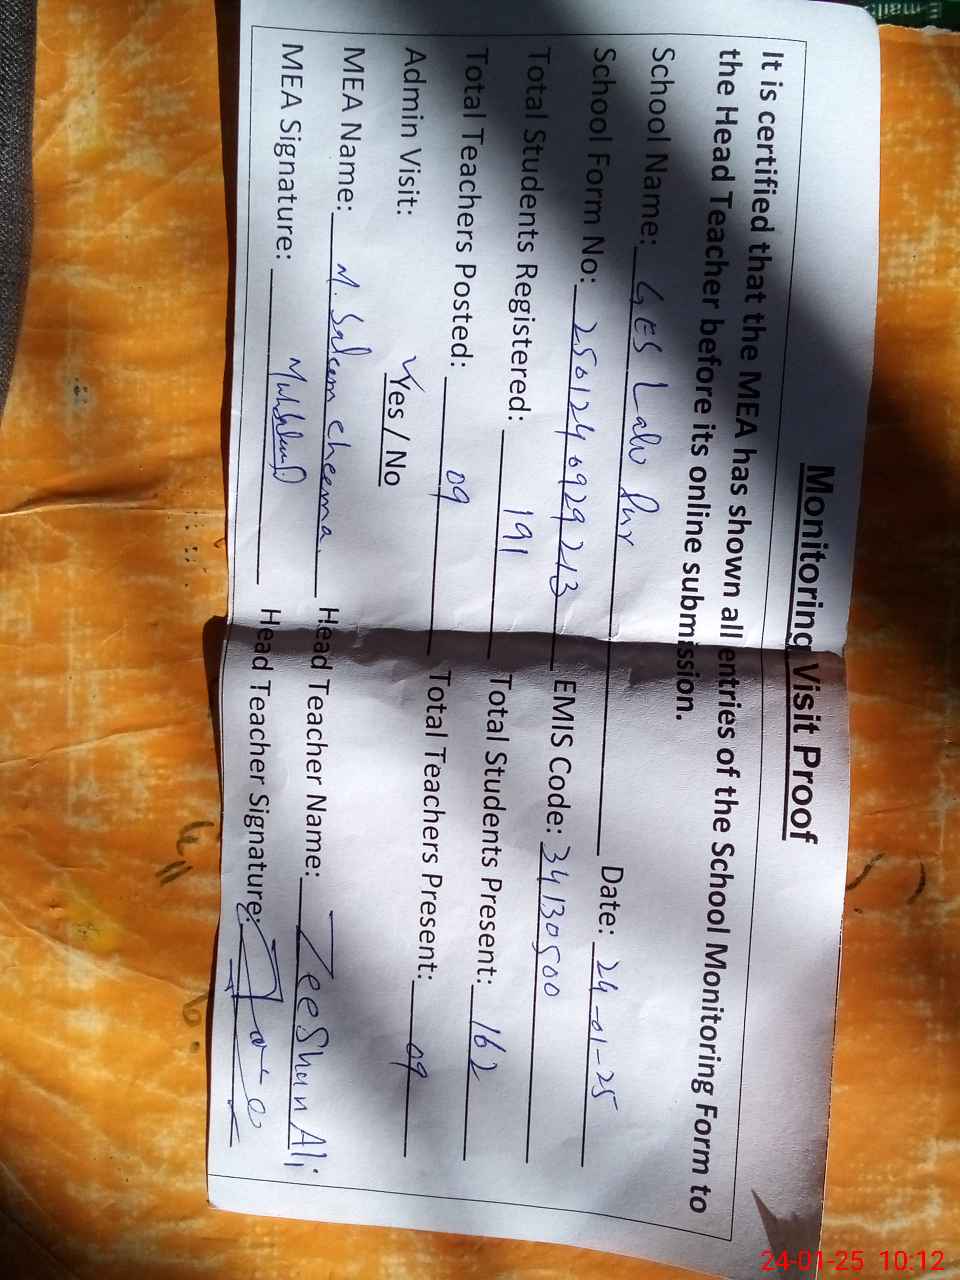 Monitoring Visit Proof
It is certified that the MEA has shown all entries of the School Monitoring Form to
the Head Teacher before its online submission.
School Name: GES Lalu Pur Date: 24-01-25
School Form No: 2501240929213 EMIS Code: 34130500
Total Students Registered: 191 Total Students Present: 162
Total Teachers Posted: 09 Total Teachers Present: 09
Admin Visit: ✓Yes / No
MEA Name: M. Saleem cheema. Head Teacher Name: ZeeShan Ali
MEA Signature: Head Teacher Signature:
24-01-25 10:12